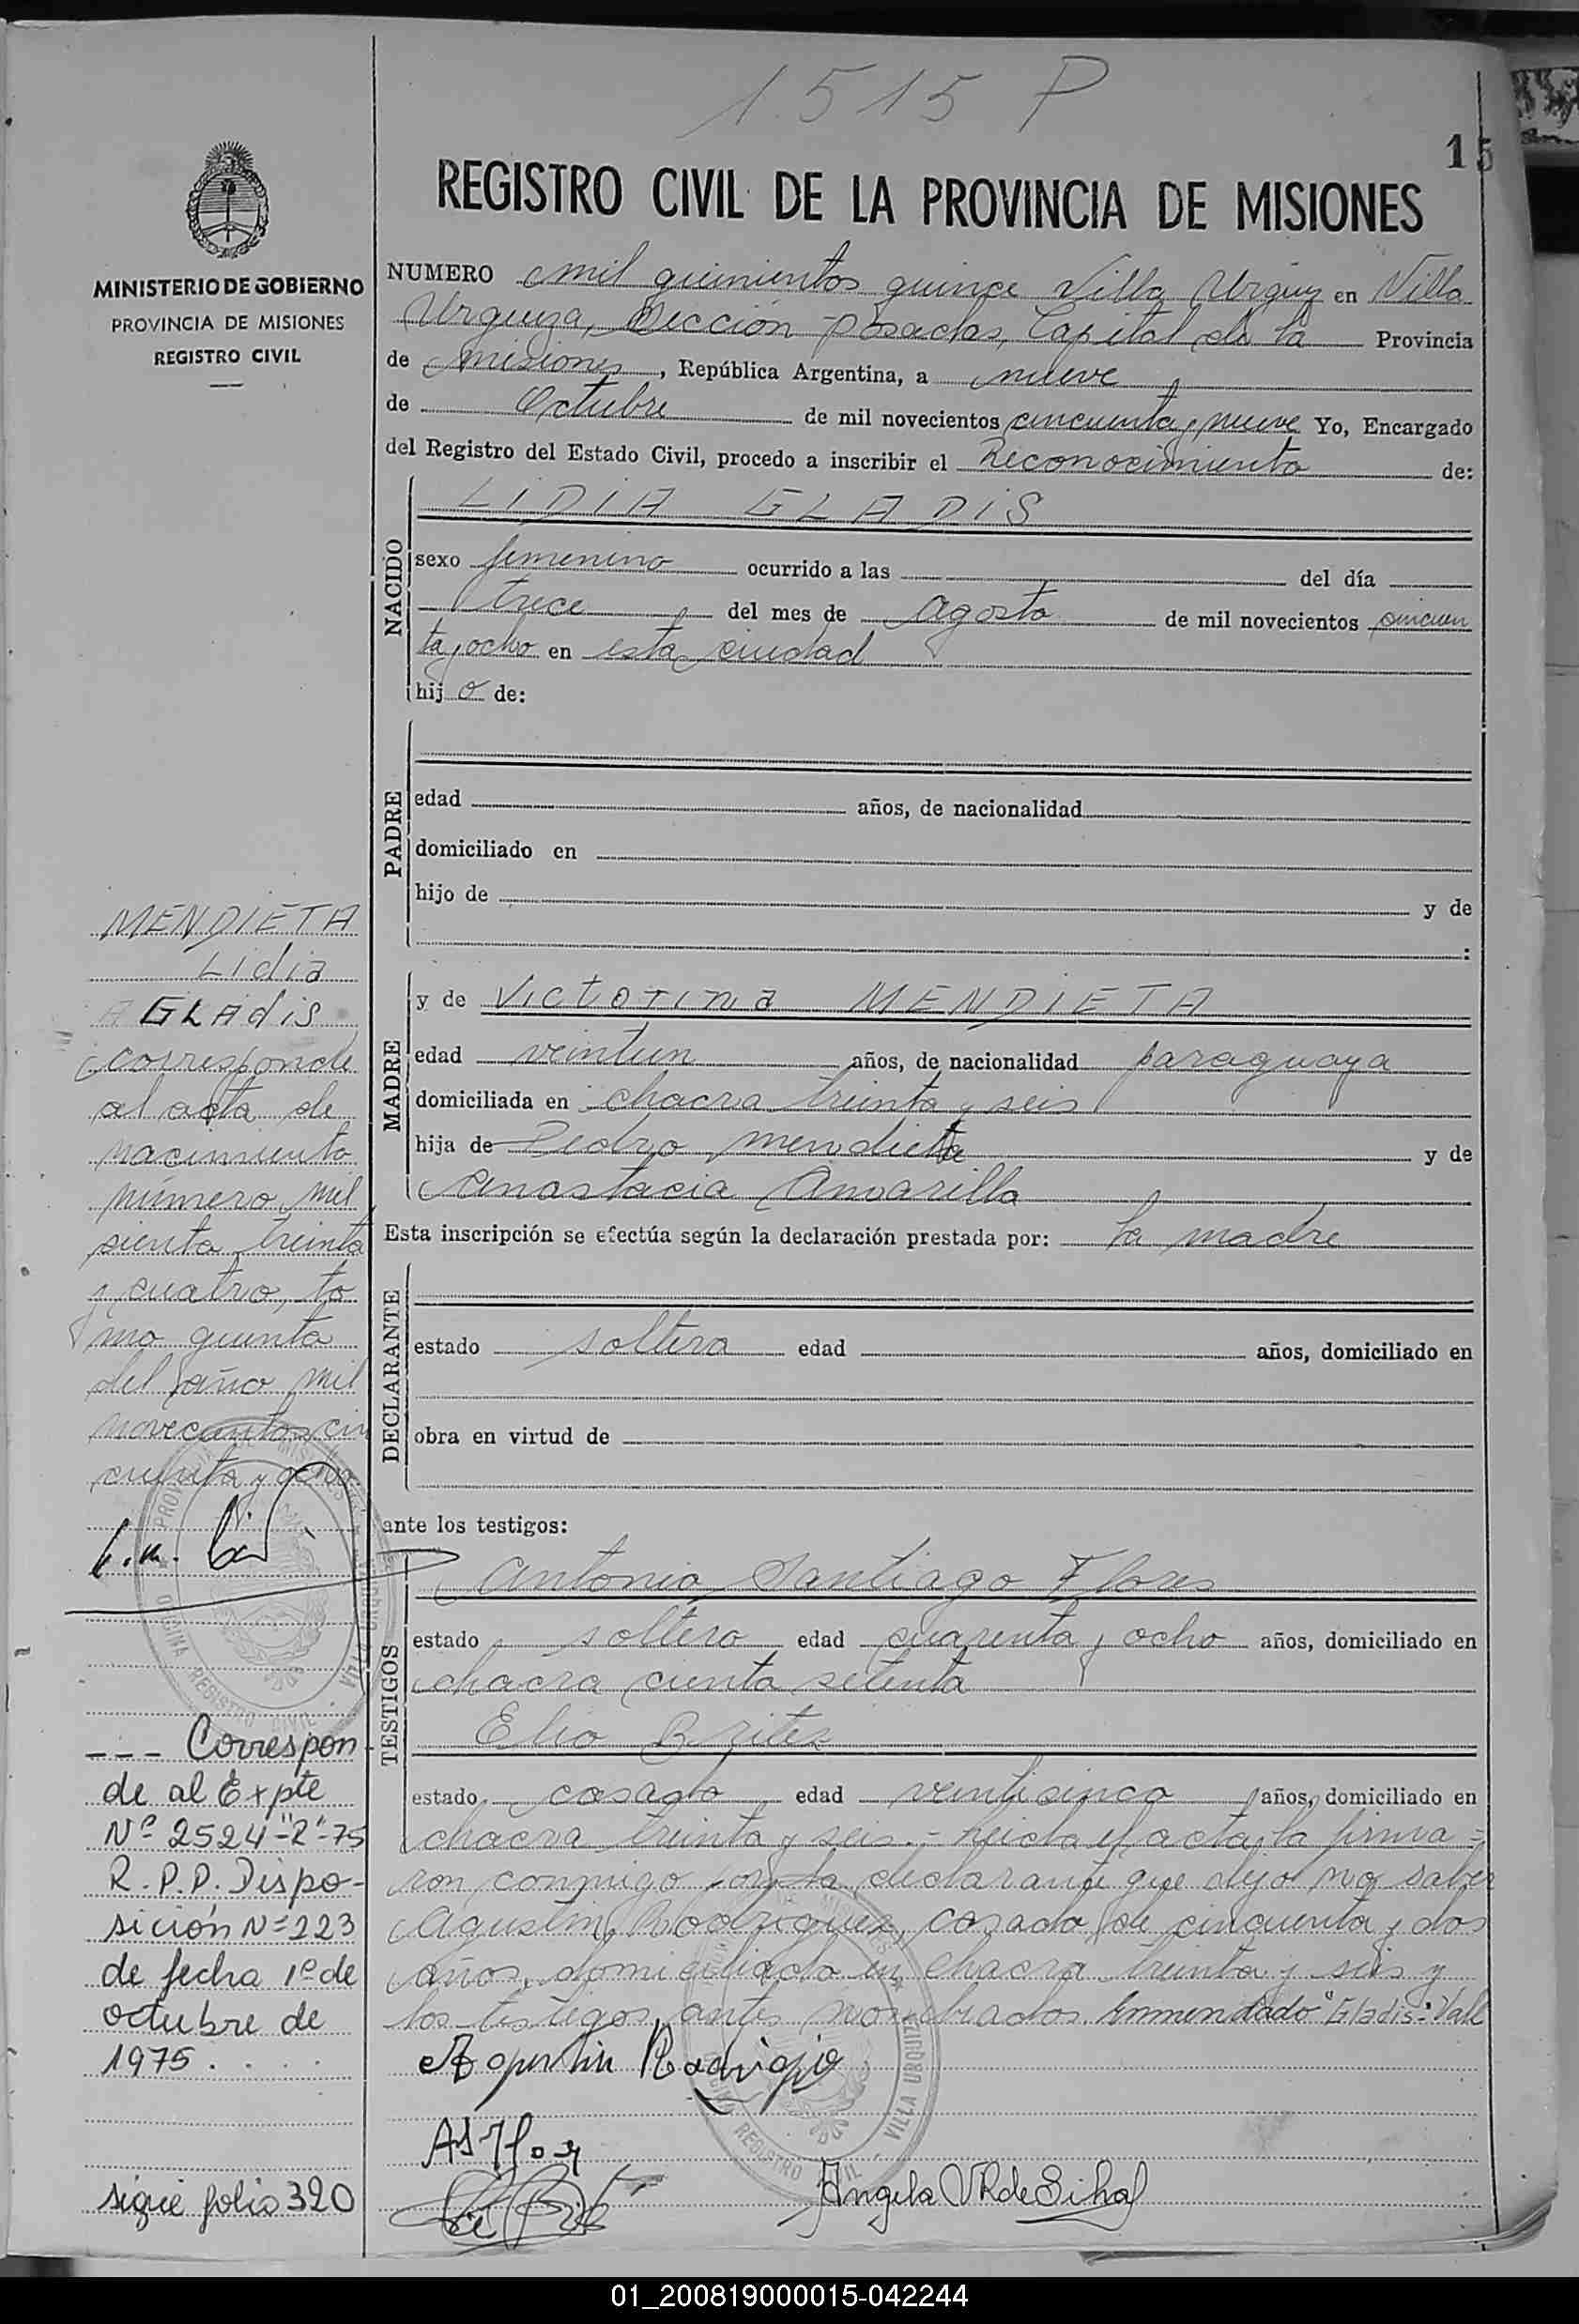 1515 P
15
REGISTRO CIVIL DE LA PROVINCIA DE MISIONES
MINISTERIO DE GOBIERNO
PROVINCIA DE MISIONES
REGISTRO CIVIL
NUMERO mil quinientos quince Villa Urquiz en Villa
Urquiza, Sección Posadas, Capital de la Provincia
de Misiones, República Argentina, a nueve
de Octubre de mil novecientos cincuenta y nueve Yo, Encargado
del Registro del Estado Civil, procedo a inscribir el Reconocimiento de:
NACIDO
LIDIA GLADIS
sexo femenino ocurrido a las del día
trece del mes de agosto de mil novecientos cincuen
ta y ocho en esta ciudad
hij o de:
PADRE
edad años, de nacionalidad
domiciliado en
hijo de y de
:
MADRE
y de Victorina MENDIETA
edad veintiun años, de nacionalidad paraguaya
domiciliada en chacra treinta y seis
hija de Pedro Mendieta y de
Anastacia Amarilla
Esta inscripción se efectúa según la declaración prestada por: la madre
DECLARANTE
estado soltera edad años, domiciliado en
obra en virtud de
ante los testigos:
TESTIGOS
Antonio Santiago Flores
estado soltero edad cuarenta y ocho años, domiciliado en
chacra ciento setenta
Elio Britez
estado casado edad veinticinco años, domiciliado en
chacra treinta y seis.- Leida el acta, la firma=
ron conmigo por la declarante que dijo no saber
Agustin Rodriguez, casado de cincuenta y dos
años, domiciliado en chacra treinta y seis y
los testigos antes nombrados. Enmendado "Gladis": Vale
Agustin Rodrigue
AS Flor
Angela V R de Silva
MENDIETA
Lidia
GLAdis
corresponde
al acta de
nacimiento
número mil
ciento treinta
y cuatro, to
mo quinto
del año mil
novecientos cin
cuenta y ocho.
--- Correspon
de al Expte
Nº 2524-"R"-75
R.P.P. Dispo-
sición Nº 223
de fecha 1º de
octubre de
1975 . . . .
sigue folio 320
OFICINA REGISTRO CIVIL
VILLA URQUIZA
01_200819000015-042244